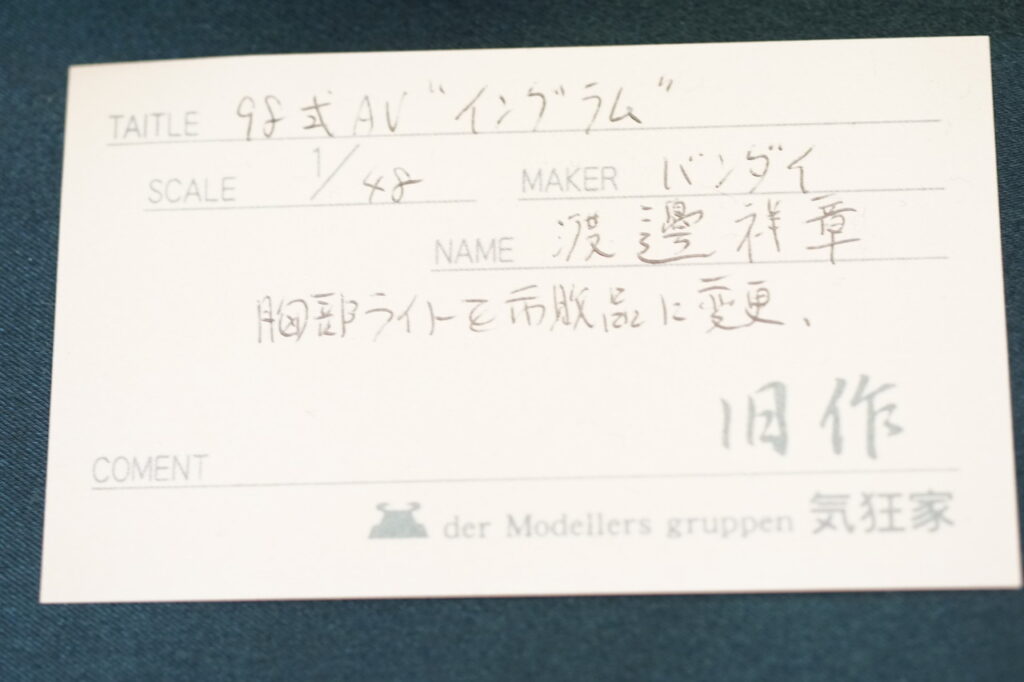 TAITLE 98式AV"イングラム"
SCALE 1/48 MAKER バンダイ
NAME 渡邊祥章
胸部ライトを市販品に変更、
旧作
COMENT
der Modellers gruppen 気狂家